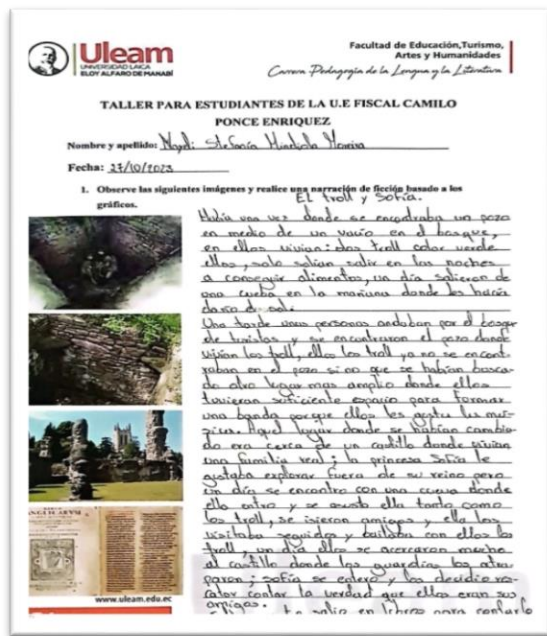 Uleam
UNIVERSIDAD LAICA
ELOY ALFARO DE MANABÍ
Facultad de Educación,Turismo,
Artes y Humanidades
Carrera Pedagogía de la Lengua y la Literatura
TALLER PARA ESTUDIANTES DE LA U.E FISCAL CAMILO
PONCE ENRIQUEZ
Nombre y apellido: Stefanía Moreira
Fecha: 27/10/2023
1. Observe las siguientes imágenes y realice una narración de ficción basado a los
gráficos.
EL troll y Sofía.
Había una vez donde se encontraba un pozo
en medio de un vacío en el bosque,
en ellos vivian: dos troll color verde
ellos, solo salir en las noches
a conseguir alimentos, un día salieron de
una cueva en la mañana donde les hacía
daño el sol.
Una tarde unas personas andaban por el bosque
de turistas y se encontraron el pozo donde
vivían los troll, ellos los troll ya no se encont-
raban en el pozo si no que se habían busca-
do otro lugar mas amplio donde ellos
tuvieran suficiente espacio para formar
una banda porque ellos les gusta la mú-
sica. Aquel lugar donde se habían cambia-
do era cerca de un castillo donde vivían
una familia real; la princesa Sofía le
gustaba explorar fuera de su reino pero
un día se encontro con una cueva donde
ella entro y se asusto ella tanto como
los troll, se isieron amigos y ella los
visitaba seguidos y bailaba con ellos los
troll, un día ellos se acercaron mucho
al castillo donde los guardias los atra-
paron; sofía se entero y los decidio re-
catar contar la verdad que ellos eran sus
amigos.
salio en libros para contarlo
ANGLICARVM
www.uleam.edu.ec